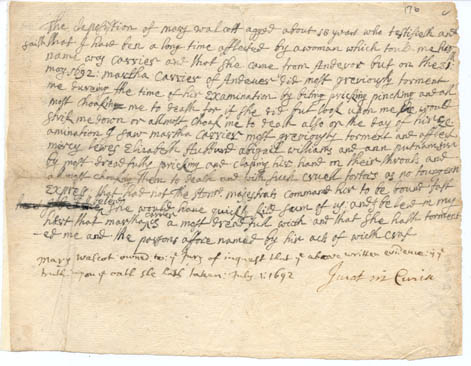 176
The deposistion of mary walcott agged about 18 years who testifieth and
saith that I have ben a long time afflected by a woman which tould me hir
name was carrier and that she came from Andevor but on the 31
may. 1692. martha Carrier of Andever did most greviously torment
me dureing the time of hir Examination by biting pricking and pinching and almost
choaking me to death for if she did but look upon me she would
strick me down or allmost choak me to death also on the day of hir Ex
amination I saw martha Carrier most greviously torment and afflect
mercy lewes Elizabeth Hubburd abigail williams and ann putnam jun
by most dreadfully pricking and claping hir hand on their throats and
almost choaking them to death with such cruell tortors as no toungue can
Express that had not the Honr. majestrats command hir to be bound fast
she would have quickly kild sum of us: and I beleve in my
hart that martha carrier is a most dreadfull wicth and that she hath torment
ed me and the parsons afore named by hir acts of wicthcraf
Mary Walcot owned to: ye Jury of inquest that ye above written evidence: is ye
truth: upon ye oath she hath taken: July: 1: 1692
Jurat in Curia